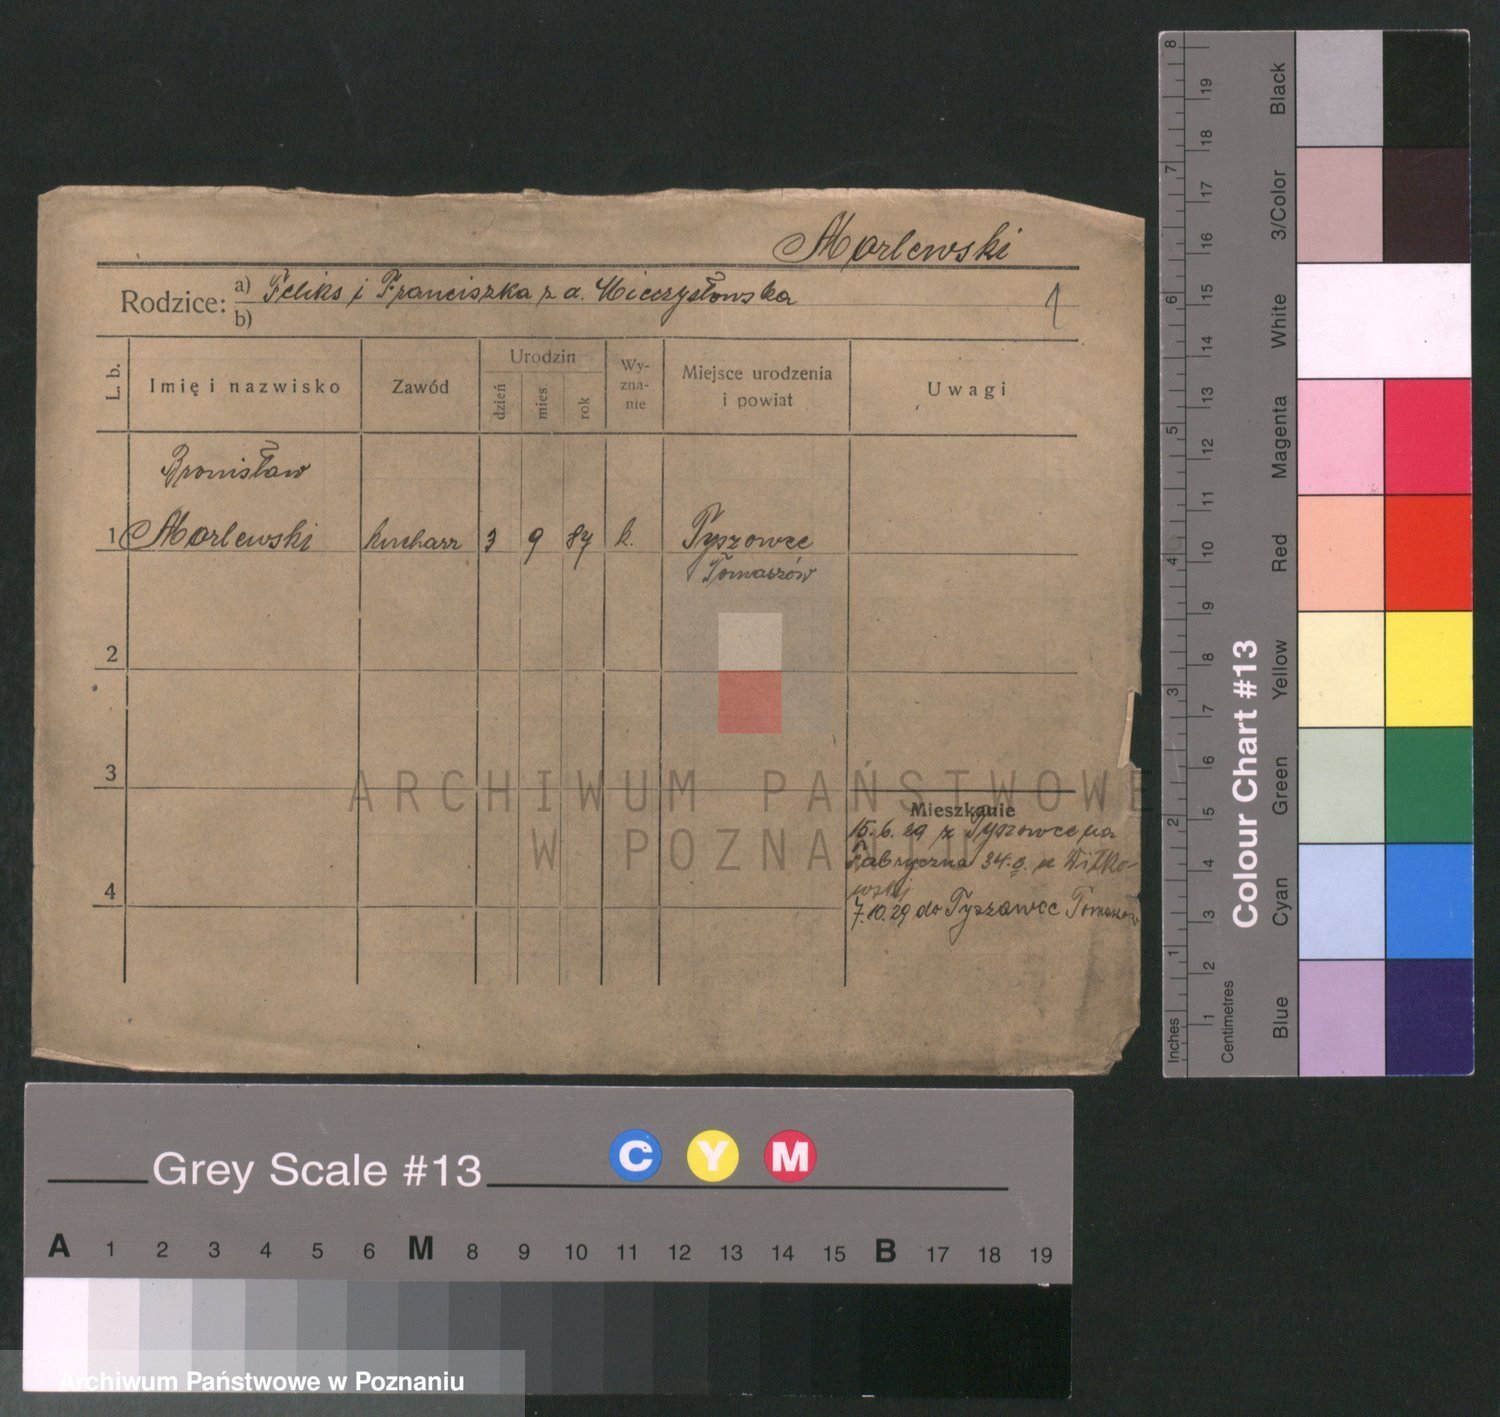 Morlewski
Rodzice: a) Feliks i Franciszka z d. Mieczysłowska
b)
L. b. Imię i nazwisko Zawód Urodzin dzień mies. rok Wyznanie Miejsce urodzenia i powiat Uwagi
Bronisław
1 Morlewski kucharz 3 9 87 k. Tyszowce
Tomaszów
2
3
Mieszkanie
15.6.29 z Tyszowce na
Fabryczna 34. u Witko-
wskiej
4
7.10.29 do Tyszowce Tomaszów
ARCHIWUM PAŃSTWOWE
W POZNANIU
Grey Scale #13 C Y M
A 1 2 3 4 5 6 M 8 9 10 11 12 13 14 15 B 17 18 19
Archiwum Państwowe w Poznaniu
Colour Chart #13
Inches 1 2 3 4 5 6 7 8
Centimetres 1 2 3 4 5 6 7 8 9 10 11 12 13 14 15 16 17 18 19
Blue Cyan Green Yellow Red Magenta White 3/Color Black